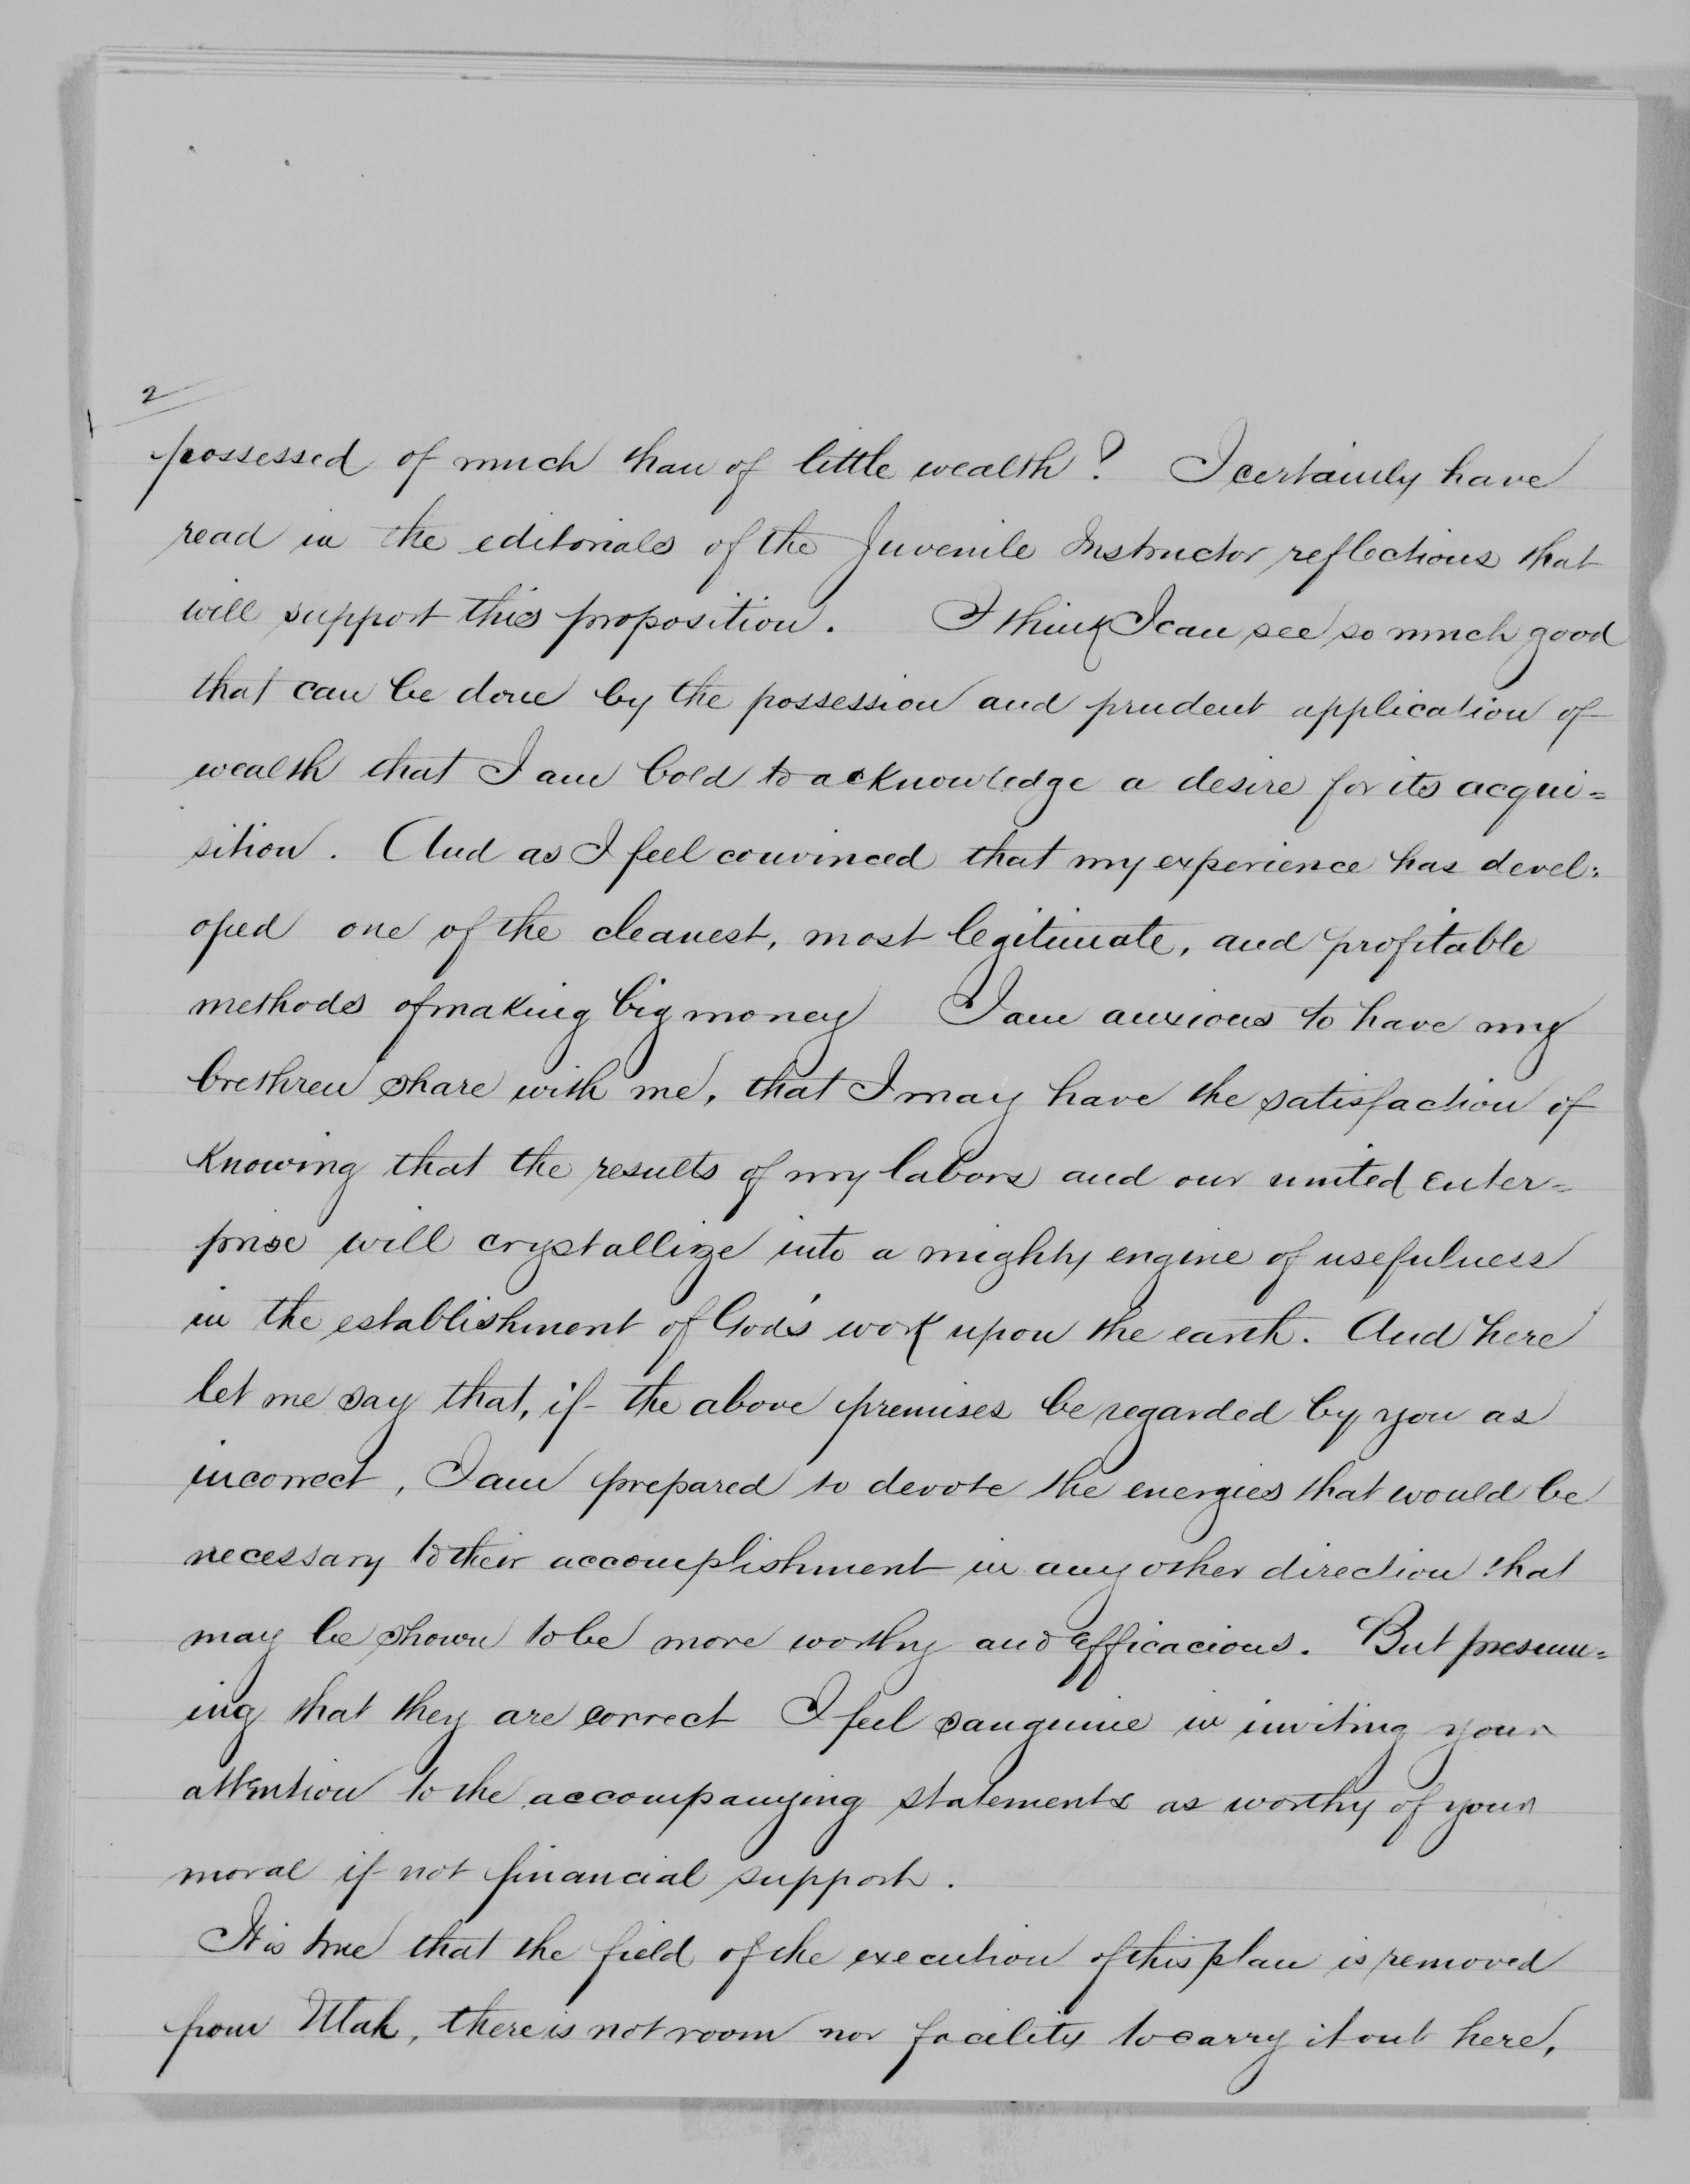 2
possessed of much than of little wealth? I certainly have
read in the editorials of the Juvenile Instructor reflections that
will support this proposition. I think I can see so much good
that can be done by the possession and prudent application of
wealth that I am bold to acknowledge a desire for its acqui=
sition. And as I feel convinced that my experience has devel:
oped one of the cleanest, most legitimate, and profitable
methods of making big money I am anxious to have my
brethren share with me, that I may have the satisfaction of
knowing that the results of my labors and our united enter=
prise will crystallize into a mighty engine of usefulness
in the establishment of God's work upon the earth. And here
let me say that, if the above premises be regarded by you as
incorrect, I am prepared to devote the energies that would be
necessary to their accomplishment in any other direction that
may be shown to be more worthy and efficacious. But presum=
ing that they are correct I feel sanguine in inviting your
attention to the accompanying statements as worthy of your
moral if not financial support.
It is true that the field of the execution of this plan is removed
from Utah, there is not room nor facility to carry it out here,